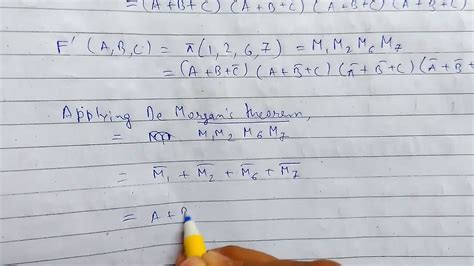 = (A+B+C) (A+B+C) (A+B+C) (A+B+C)
F' (A,B,C) = π(1,2,6,7) = M₁M₂M₆M₇
= (A+B+C̅) (A+B̅+C) (A̅+B̅+C) (A̅+B̅+
Applying De Morgan's theorem,
= \overline{M₁M₂ M₆M₇}
= M̅₁ + M̅₂ + M̅₆ + M̅₇
= A+B